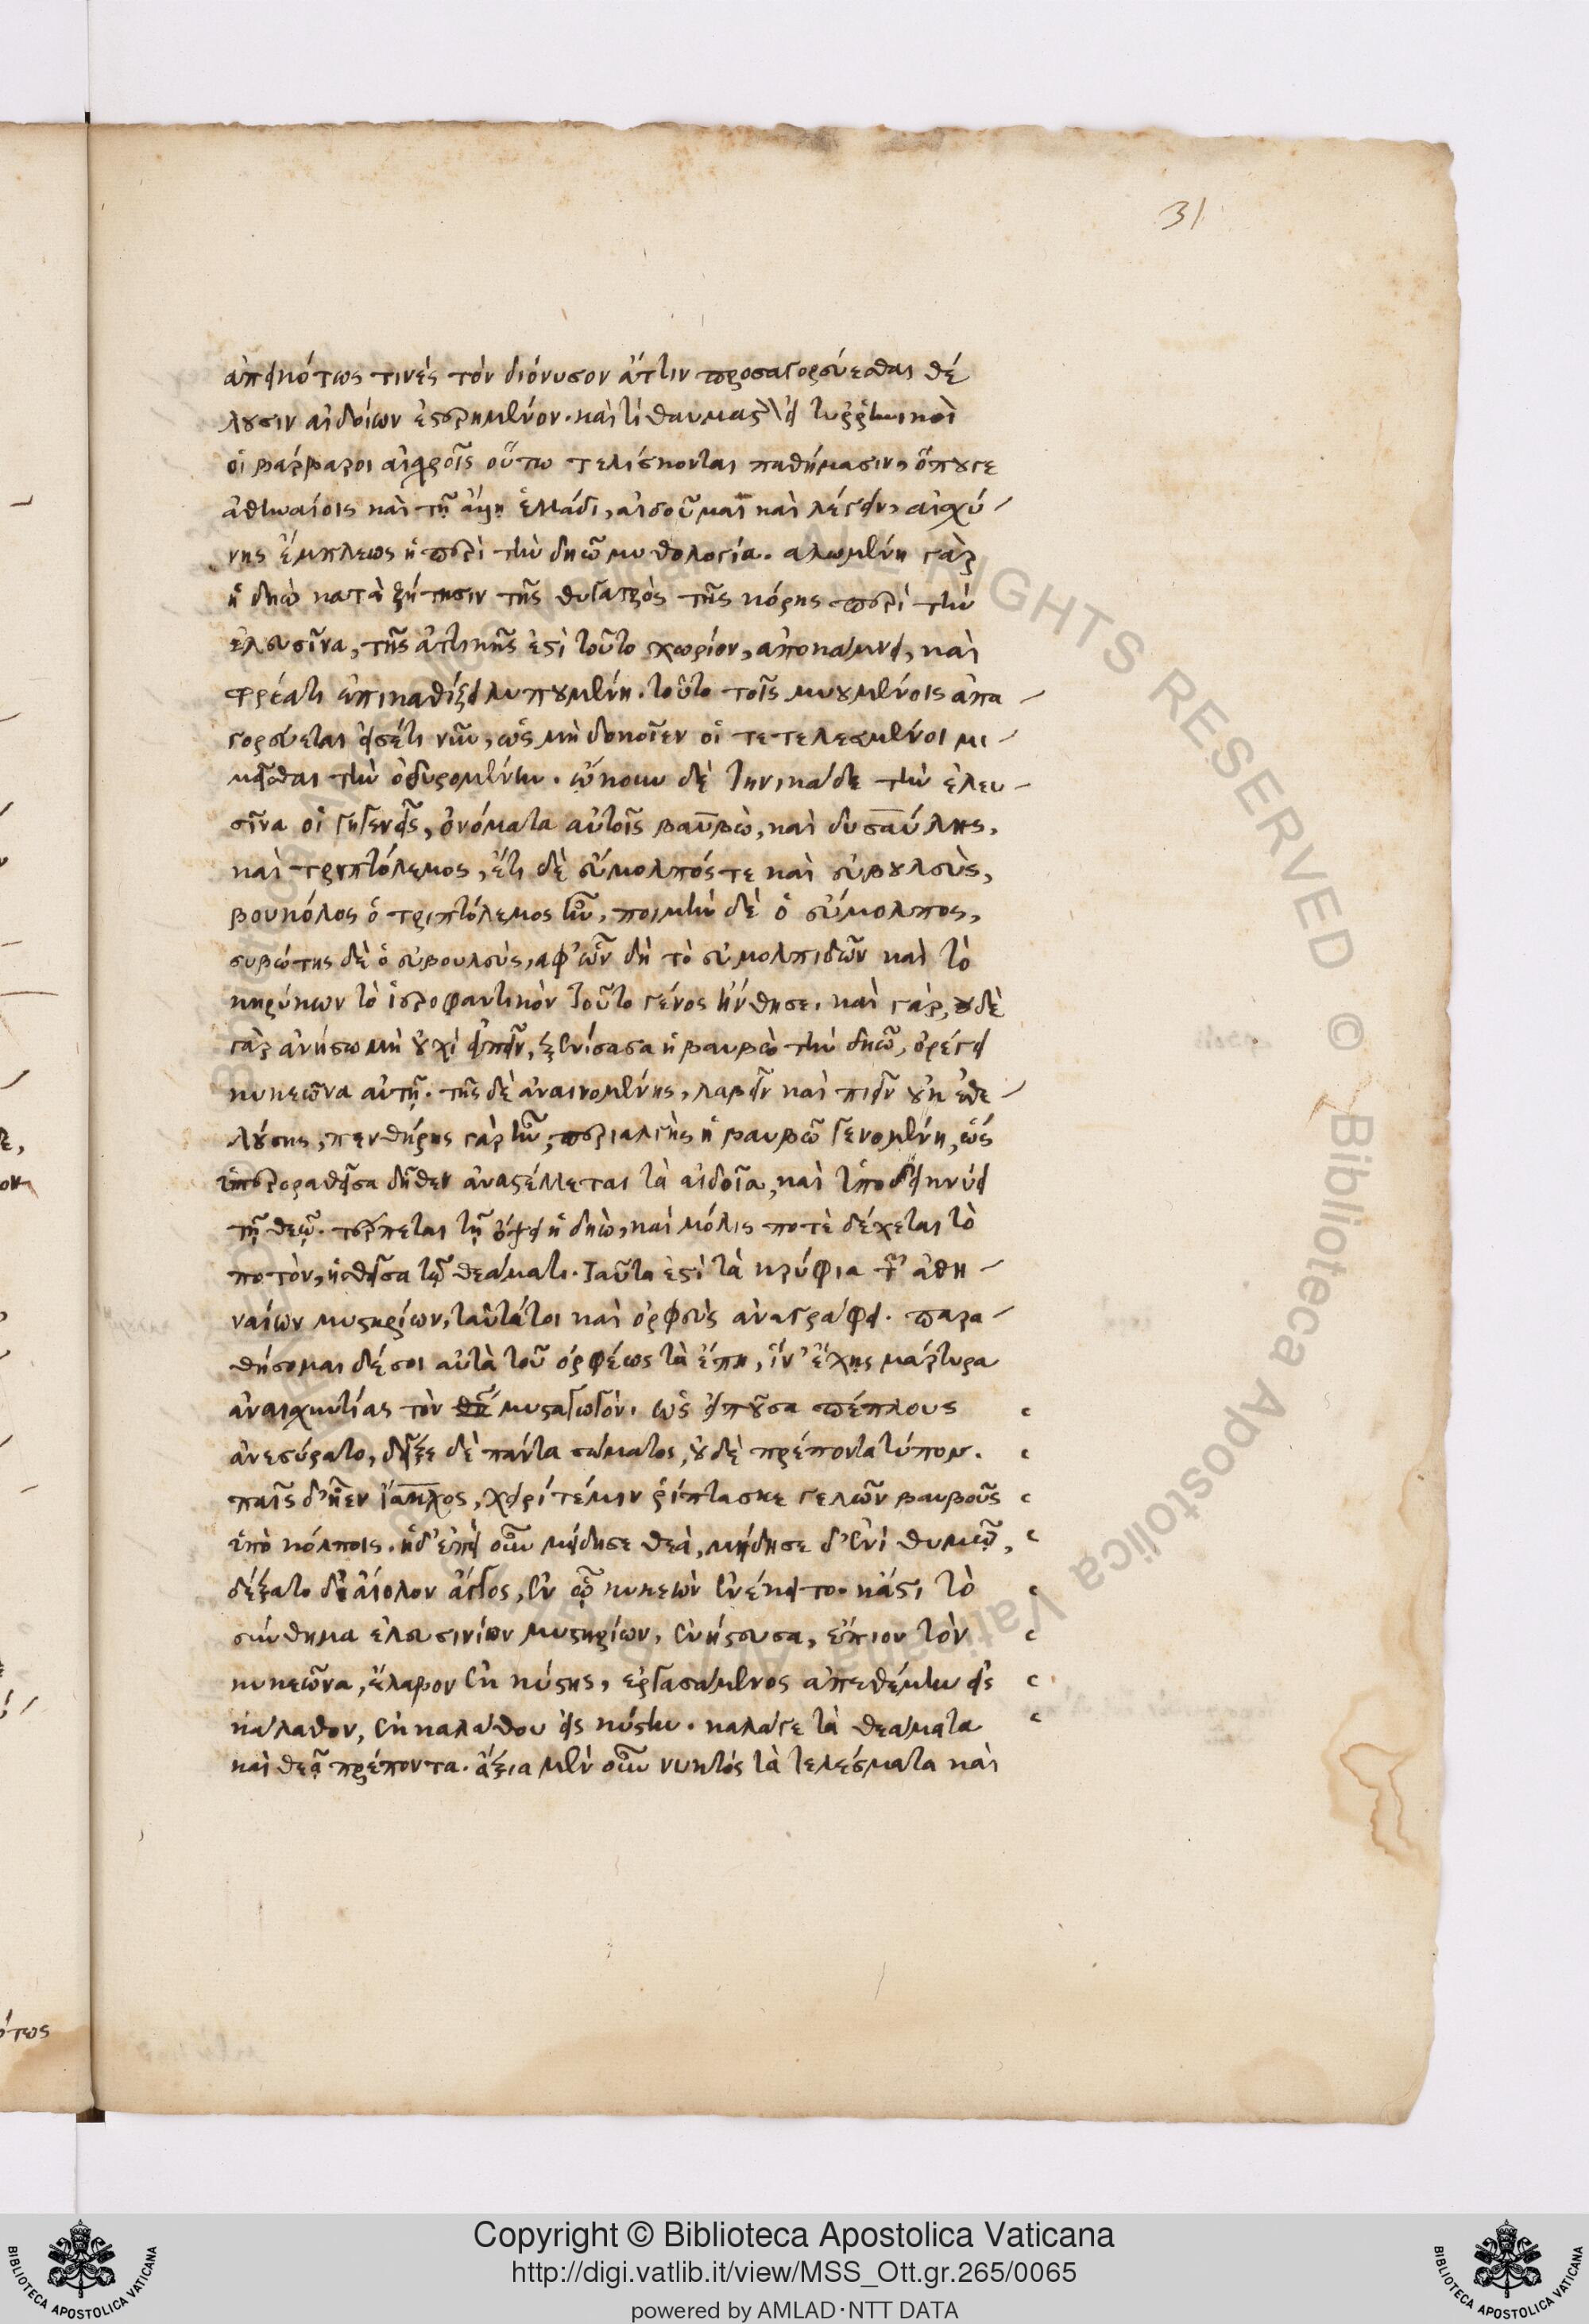 31
ἀπεικότως τινὲς τὸν διόνυσον ἄτ̓τιν προσαγορεύεσθαι θέ
λουσιν αἰδοίων ἐστρημένον. καὶ τί θαυμαστὸν εἰ τυρρηνικοὶ
οἱ βάρβαροι αἰσχροῖς οὕτω τελίσκονται παθήμασιν, ὅπου γε
ἀθηναίοις καὶ τῇ ἄλλῃ ἑλλάδι, αἰδοῦμαι καὶ λέγειν, αἰσχύ
νης ἔμπλεως ἡ περὶ τὴν δηὼ μυθολογία. ἀλωμένη γὰρ
ἡ δηὼ κατὰ ζήτησιν τῆς θυγατρὸς τῆς κόρης περὶ τὴν
ἐλευσῖνα, τῆς ἀττικῆς ἐστὶ τοῦτο χωρίον, ἀποκάμνει, καὶ
φρέατι ἐπικαθίζει λυπουμένη. τοῦτο τοῖς μυουμένοις ἀπα
γορεύεται εἰσέτι νῦν, ὡς μὴ δοκοῖεν οἱ τετελεσμένοι μι
μεῖσθαι τὴν ὀδυρομένην. ᾤκουν δὲ τηνικάδε τὴν ἐλευ
σῖνα οἱ γηγενεῖς, ὀνόματα αὐτοῖς βαυβὼ, καὶ δυσαύλης,
καὶ τριπτόλεμος, ἔτι δὲ εὔμολπός τε καὶ εὐβουλεὺς,
βουκόλος ὁ τριπτόλεμος ἦν, ποιμὴν δὲ ὁ εὔμολπος,
συβώτης δὲ ὁ εὐβουλεὺς, ἀφ' ὧν δὴ τὸ εὐμολπιδῶν καὶ τὸ
κηρύκων τὸ ἱεροφαντικὸν τοῦτο γένος ἤνθησε. καὶ γὰρ, οὐδὲ
γὰρ ἀνήσω μὴ οὐχὶ εἰπεῖν, ξενίσασα ἡ βαυβὼ τὴν δηὼ, ὀρέγει
κυκεῶνα αὐτῇ. τῆς δὲ ἀναινομένης, λαβεῖν καὶ πιεῖν οὐκ ἐθε
λούσης, πενθήρης γὰρ ἦν, περιαλγὴς ἡ βαυβὼ γενομένη, ὡς
ὑπεροραθεῖσα δῆθεν ἀναστέλλεται τὰ αἰδοῖα, καὶ ὑποδεικνύει
τῇ θεῷ. τέρπεται τῇ ὄψει ἡ δηὼ, καὶ μόλις ποτὲ δέχεται τὸ
ποτὸν, ἡσθεῖσα τῷ θεάματι. ταῦτα ἐστὶ τὰ κρύφια τῶν ἀθη
ναίων μυστηρίων, ταῦτά τοι καὶ ὀρφεὺς ἀναγράφει. παρα
θήσομαι δέ σοι αὐτὰ τοῦ ὀρφέως τὰ ἔπη, ἵν' ἔχῃς μάρτυρα
ἀναισχυντίας τὸν μυσταγωγόν. ὡς εἰποῦσα πέπλους
ἀνεσύρατο, δεῖξε δὲ πάντα σώματος, οὐδὲ πρέποντα τύπον.
παῖς δ' ἦεν ἴακχος, χειρί τέ μιν ῥίπτασκε γελῶν βαυβοῦς
ὑπὸ κόλποις. ἡ δ' ἐπεὶ οὖν μείδησε θεὰ, μείδησε δ' ἐνὶ θυμῷ,
δέξατο δ' αἰόλον ἄγγος, ἐν ᾧ κυκεὼν ἐνέκειτο. κἄστι τὸ
σύνθημα ἐλευσινίων μυστηρίων, ἐνήστευσα, ἔπιον τὸν
κυκεῶνα, ἔλαβον ἐκ κύστης, ἐργασάμενος ἀπεθέμην εἰς
κάλαθον, ἐκ καλάθου εἰς κύστην. καλά γε τὰ θεάματα
καὶ θεᾷ πρέποντα. ἄξια μὲν οὖν νυκτὸς τὰ τελέσματα καὶ
Copyright © Biblioteca Apostolica Vaticana
http://digi.vatlib.it/view/MSS_Ott.gr.265/0065
powered by AMLAD·NTT DATA